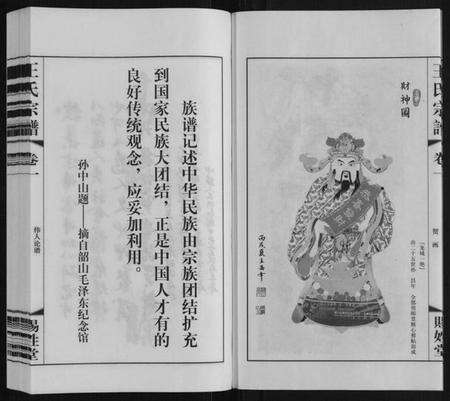 王氏宗譜
卷一
财神图
贺画
丙戌夏王西平
賜姓堂
王氏宗譜
卷一
伟人论谱
賜姓堂
族谱记述中华民族由宗族团结扩充
到国家民族大团结，正是中国人才有的
良好传统观念，应妥加利用。
孙中山题——摘自韶山毛泽东纪念馆